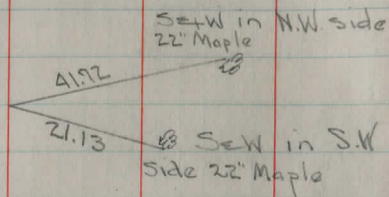 S&W in N.W. side
22" Maple
41.72
21.13
S&W in S.W
Side 22" Maple